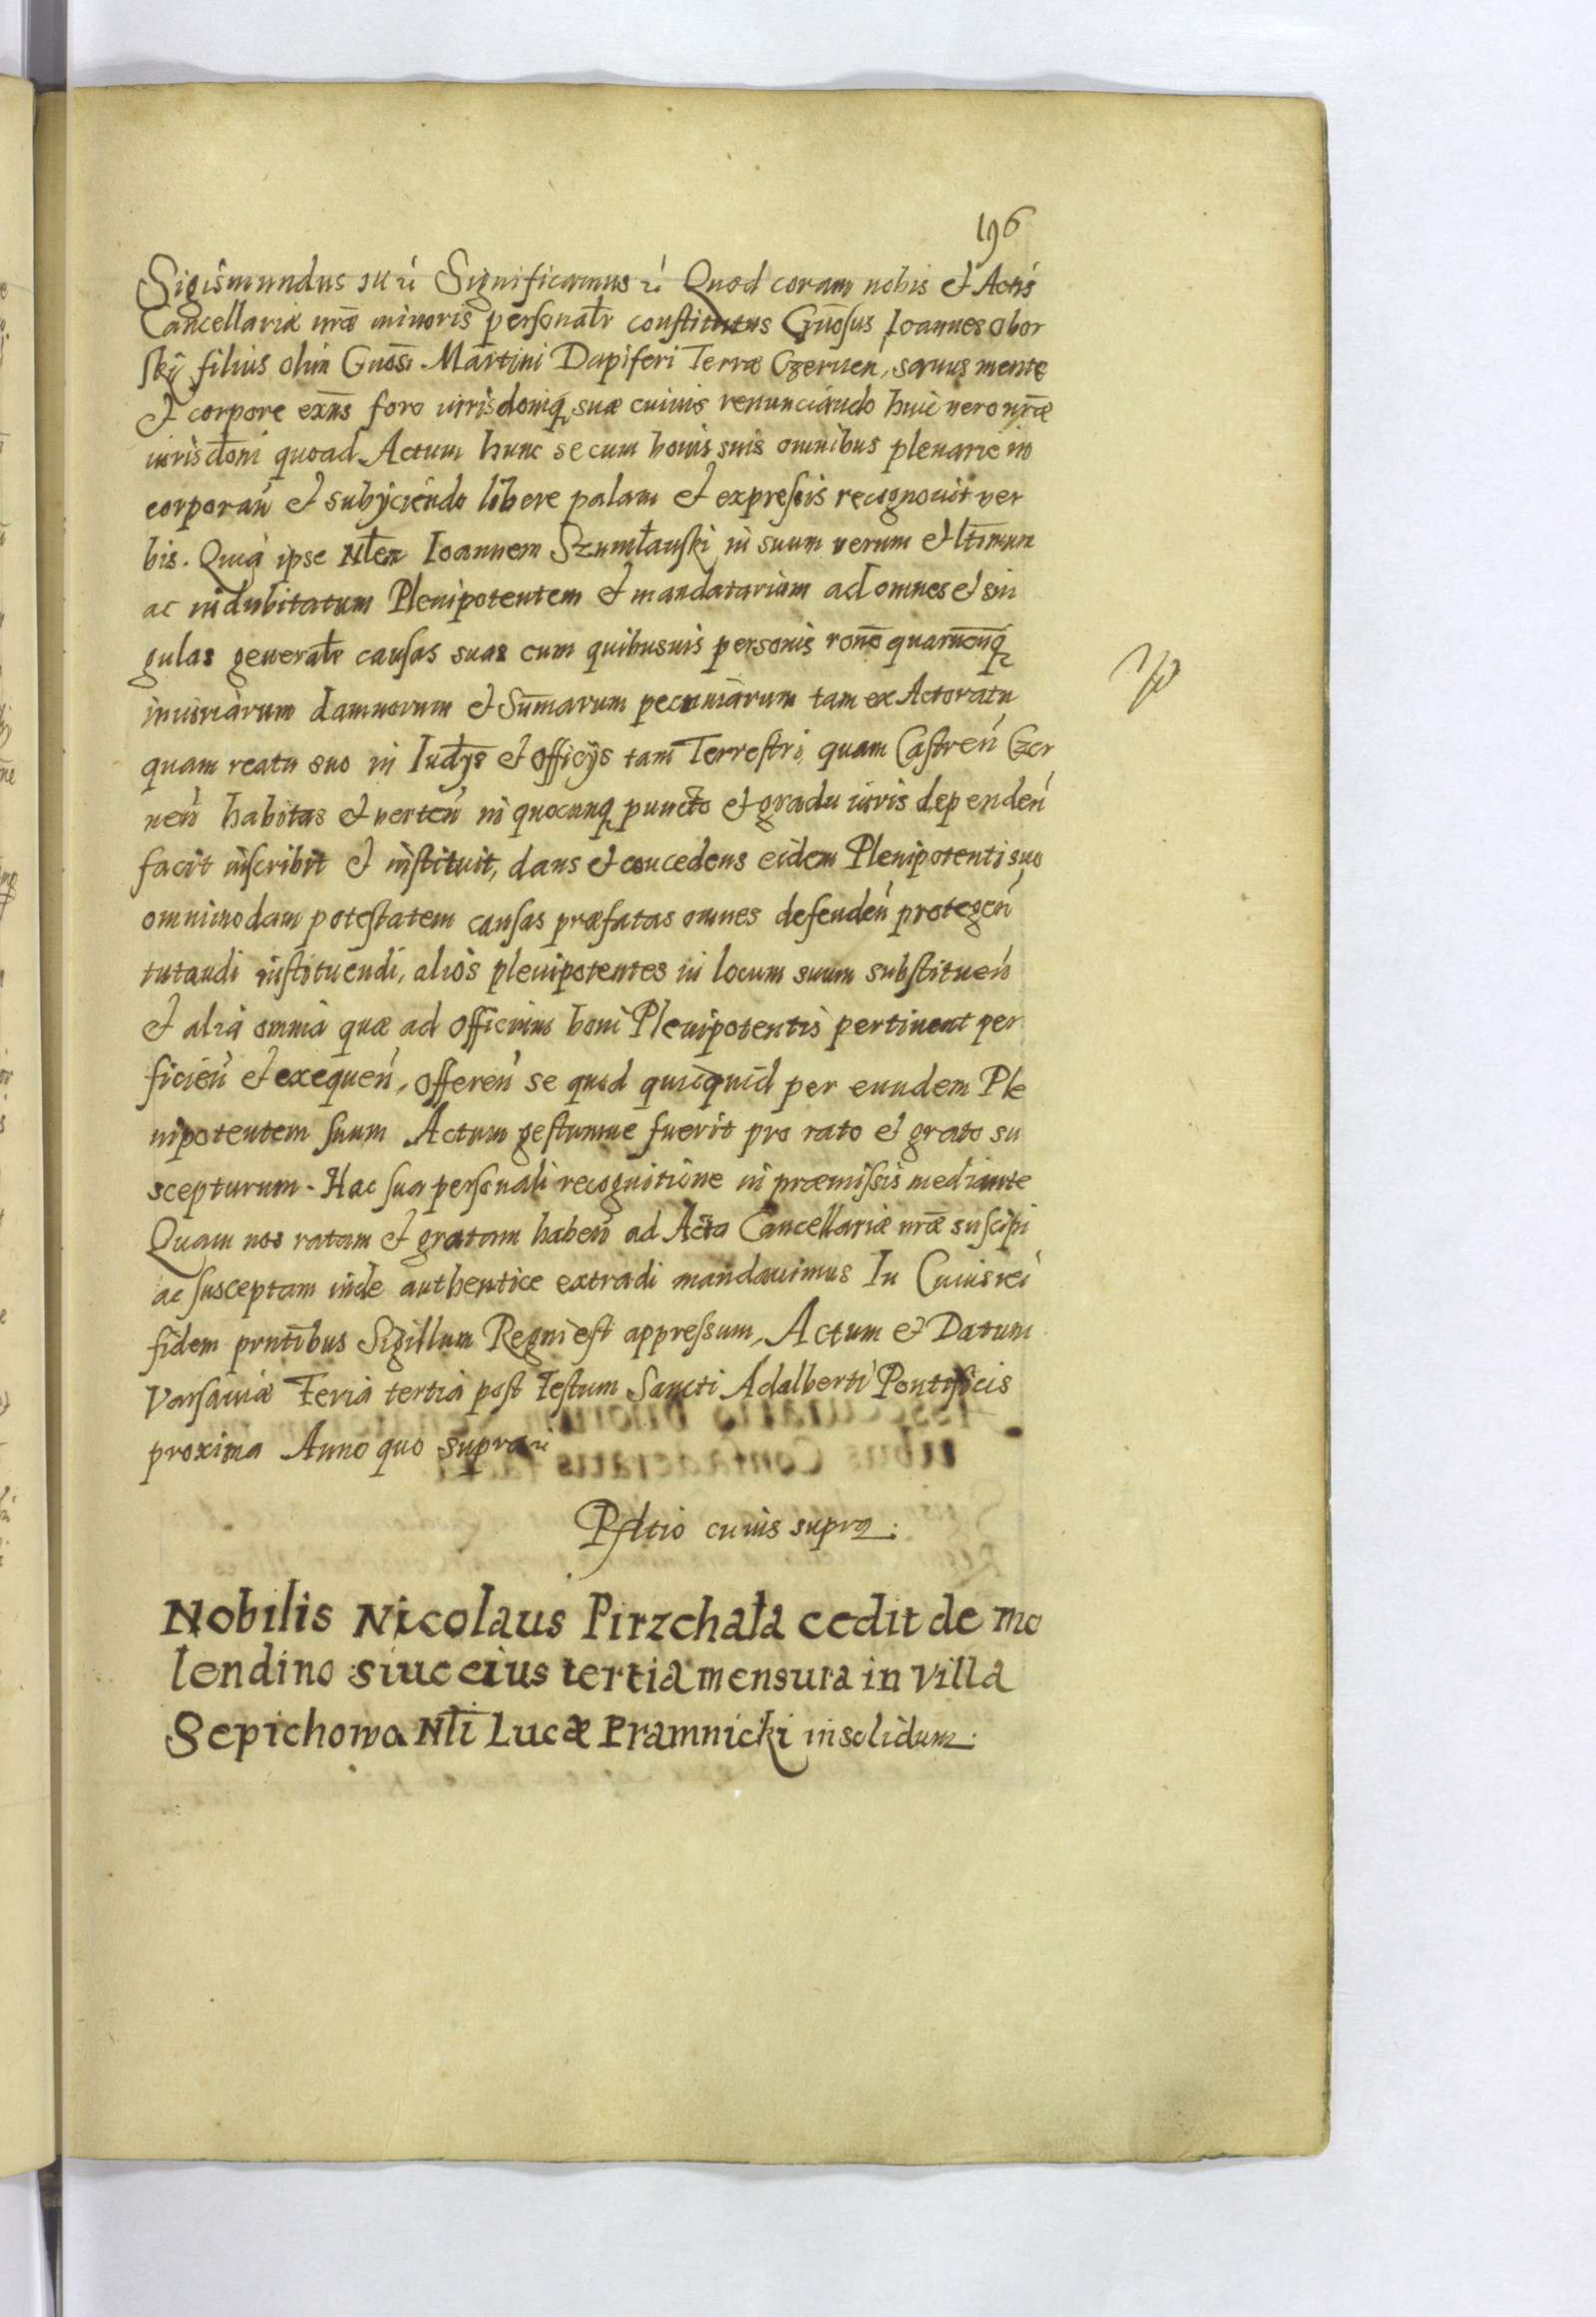 196
Sigismundus III rć Significamus rć Quod coram nobis et Actis
Cancellariæ nr̄æ minoris personalr̄ constitutus Gn̄osus Ioannes Obor
skij filius olim Gn̄osi Martini Dapiferi Terræ Czernen̄, sanus mente
et corpore exn̄s foro iurisdoniq̨ suæ cuiuis renunciando huic vero nr̄æ
iurisdoni quoad Actum hunc se cum bonis suis omnibus plenarie in
corporan̄ et subijciendo libere palam et expressis recognouit ver
bis. Quia ipse Nłem Ioannem Szumłanski in suum verum et ltimum
ac indubitatum Plenipotentem et mandatarium ad omnes et sin
gulas generalr̄ causas suas cum quibusuis personis rōne quarumcunq̨
iniuriarum damnorum et Sum̄arum pecuniarum tam ex Actoratu
quam reatu suo in Iudijs et Officijs tam Terrestri, quam Castren̄ Czer
nen̄ habitas et verten̄ in quocunq̨ puncto et gradu iuris dependen̄
facit inscribit et instituit, dans et concedens eidem Plenipotenti suo
omnimodam potestatem causas præfatas omnes defenden̄ protegen̄
tutandi instituendi, alios plenipotentes in locum suum substituen̄
et alia omnia quæ ad Officium boni Plenipotentis pertinent per
ficien̄ et exequen̄, Offeren̄ se quod quicquid per eundem Ple
nipotentem suum Actum gestumue fuerit pro rato et grato su
scepturum. Hac sua personali recognitione in præmissis mediante
Quam nos ratam et gratam haben̄ ad Acta Cancellariæ nr̄æ suscipi
ac susceptam inde authentice extradi mandauimus In Cuius rei
fidem prn̄tibus Sigillum Regni est appressum, Actum et Datum
Varsaviæ Feria tertia post Festum Sancti Adalberti Pontificis
proxima Anno quo supra rć
Rltio cuius supra.
Nobilis Nicolaus Pirzchała cedit de mo
lendino siue eius tertia mensura in villa
Sepichowo Nłi Lucæ Pramnicki in solidum.